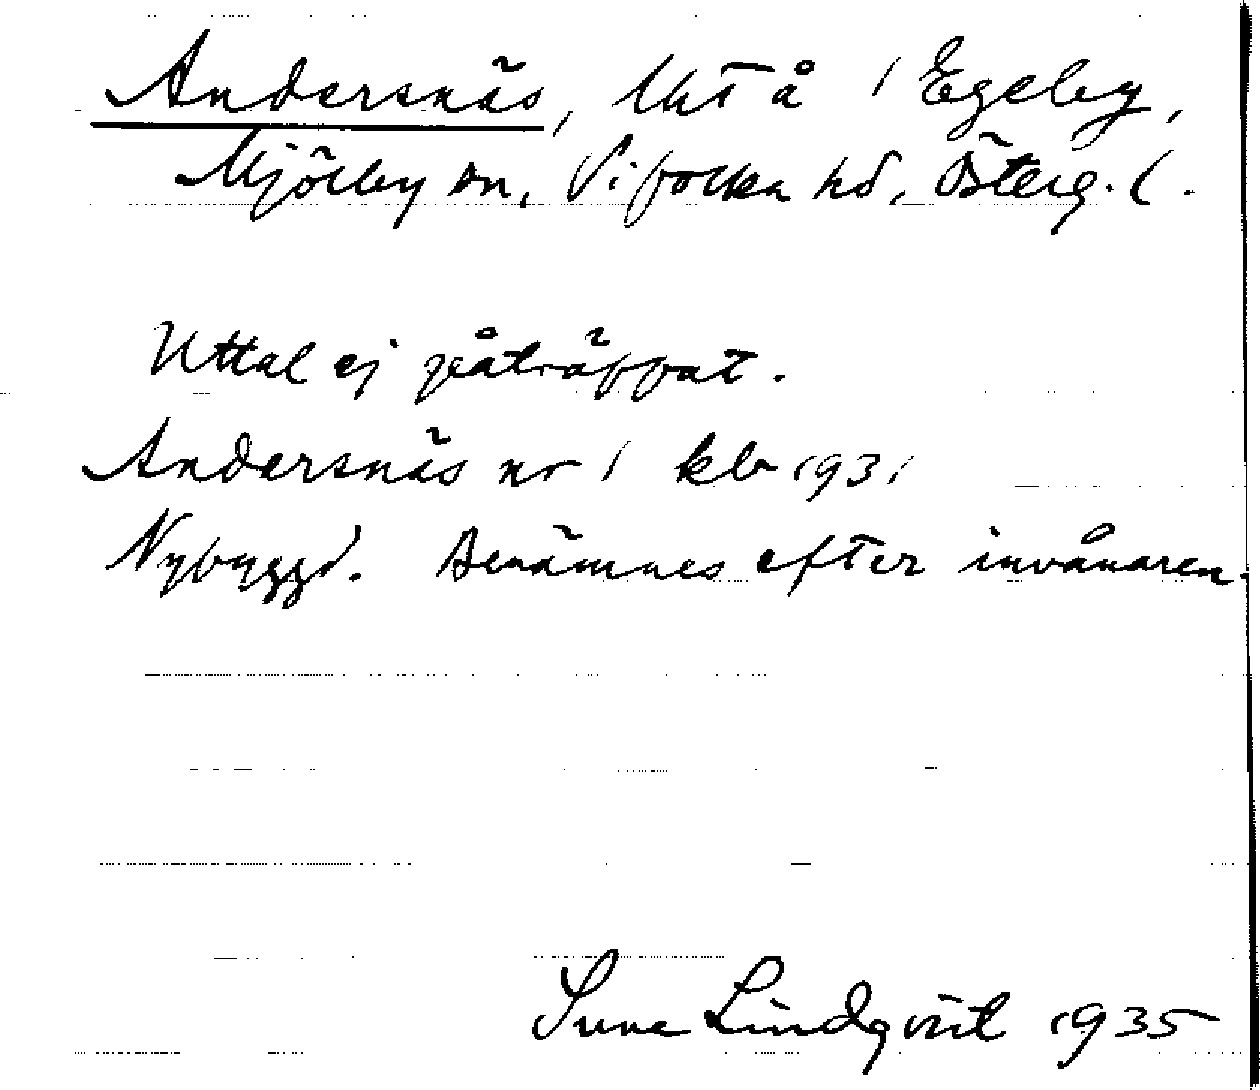 Andersnäs, lht å 1 Egeby,
Mjölby sn, Vifolka hd, Österg. l.
Uttal ej påträffat.
Andersnäs nr 1 klr 1931
Nybyggd. Benämnes efter invånaren.
Sune Lindqvist 1935